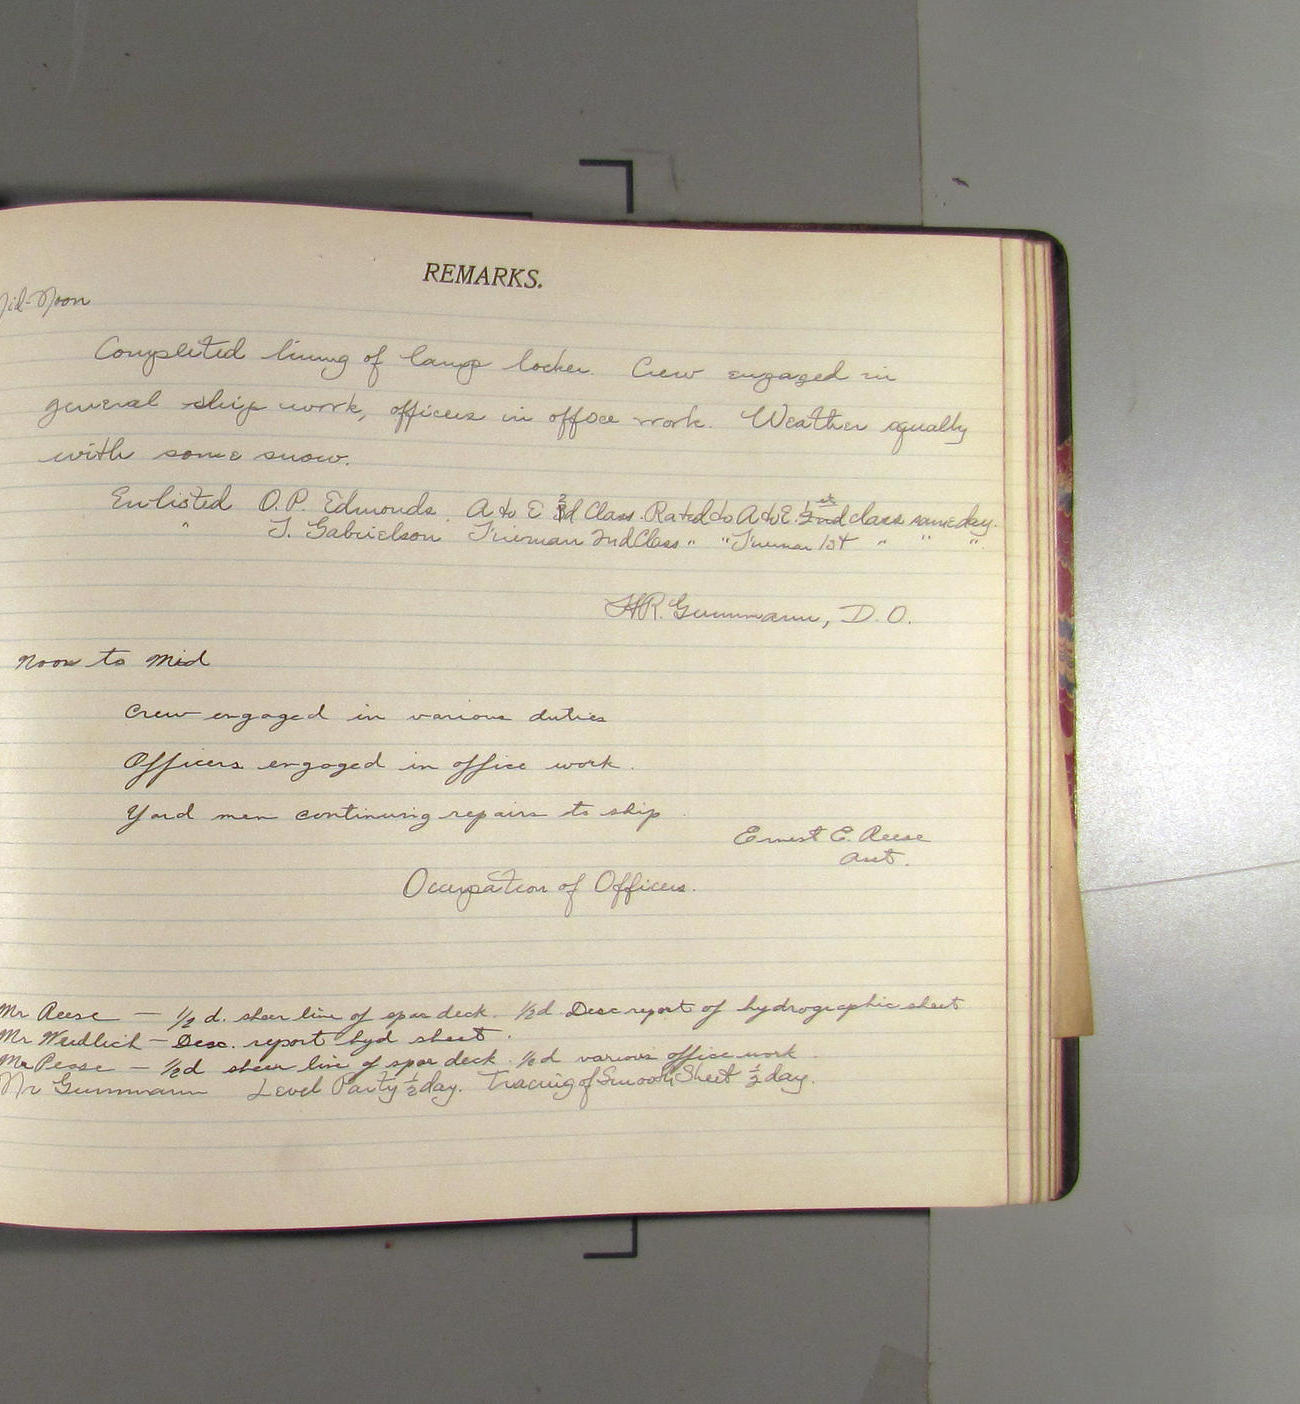 REMARKS.
Mid-Noon
Completed lining of lamp locker. Crew engaged in
general ship work, officers in office work. Weather squally
with some snow.
Enlisted O.P. Edmonds. A to E 2d Class. Rated to A to E. 1st class same day.
" T. Gabrielson Fireman 2nd Class " " Fireman 1st " " "
H.R. Gummann, D.O.
Noon to Mid
Crew engaged in various duties
Officers engaged in office work.
Yard men continuing repairs to ship.
Ernest E. Reese
Occupation of Officers.
Mr Reese — 1/2 d. sheer line of spar deck. 1/2 d. Desc report of hydrographic sheet
Mr Weidlich — Desc. report hyd sheet.
Mr Pease — 1/2 d sheer line of spar deck. 1/2 d various office work.
Mr Gummann Level Party 1/2 day. Tracing of Smooth Sheet 1/2 day.